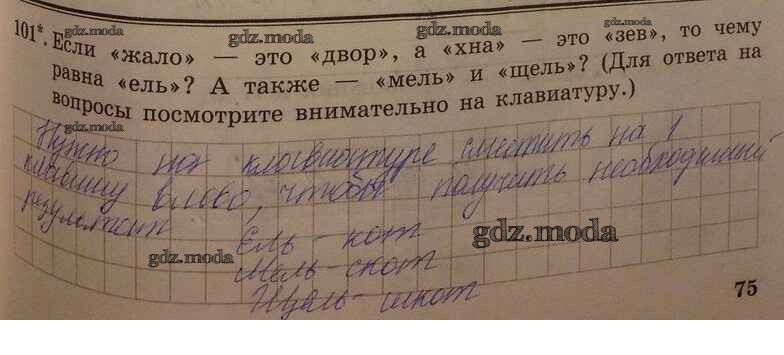 101*. Если «жало» — это «двор», а «хна» — это «зев», то чему
равна «ель»? А также — «мель» и «щель»? (Для ответа на
вопросы посмотрите внимательно на клавиатуру.)
Нужно на клавиатуре сместить на 1
клавишу влево, чтобы получить необходимый
результат
Ель - кот
Мель - скот
Щель - шкот
75
gdz.moda
gdz.moda
gdz.moda
gdz.moda
gdz.moda
gdz.moda
gdz.moda